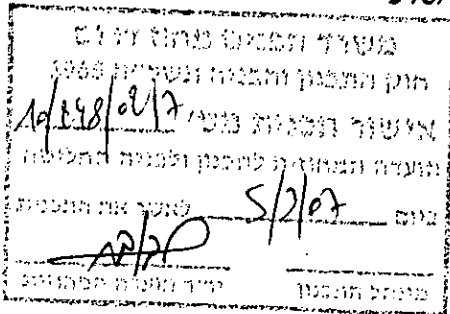 משרד הפנים מחוז דרום
חוק התכנון והבניה תשכ"ה 1965
אישור תכנית מס' 7/02/248/10
הועדה המחוזית לתכנון ולבניה החליטה
ביום 5/2/07 לאשר את התכנית
מינהל התכנון יו"ר הועדה המחוזית